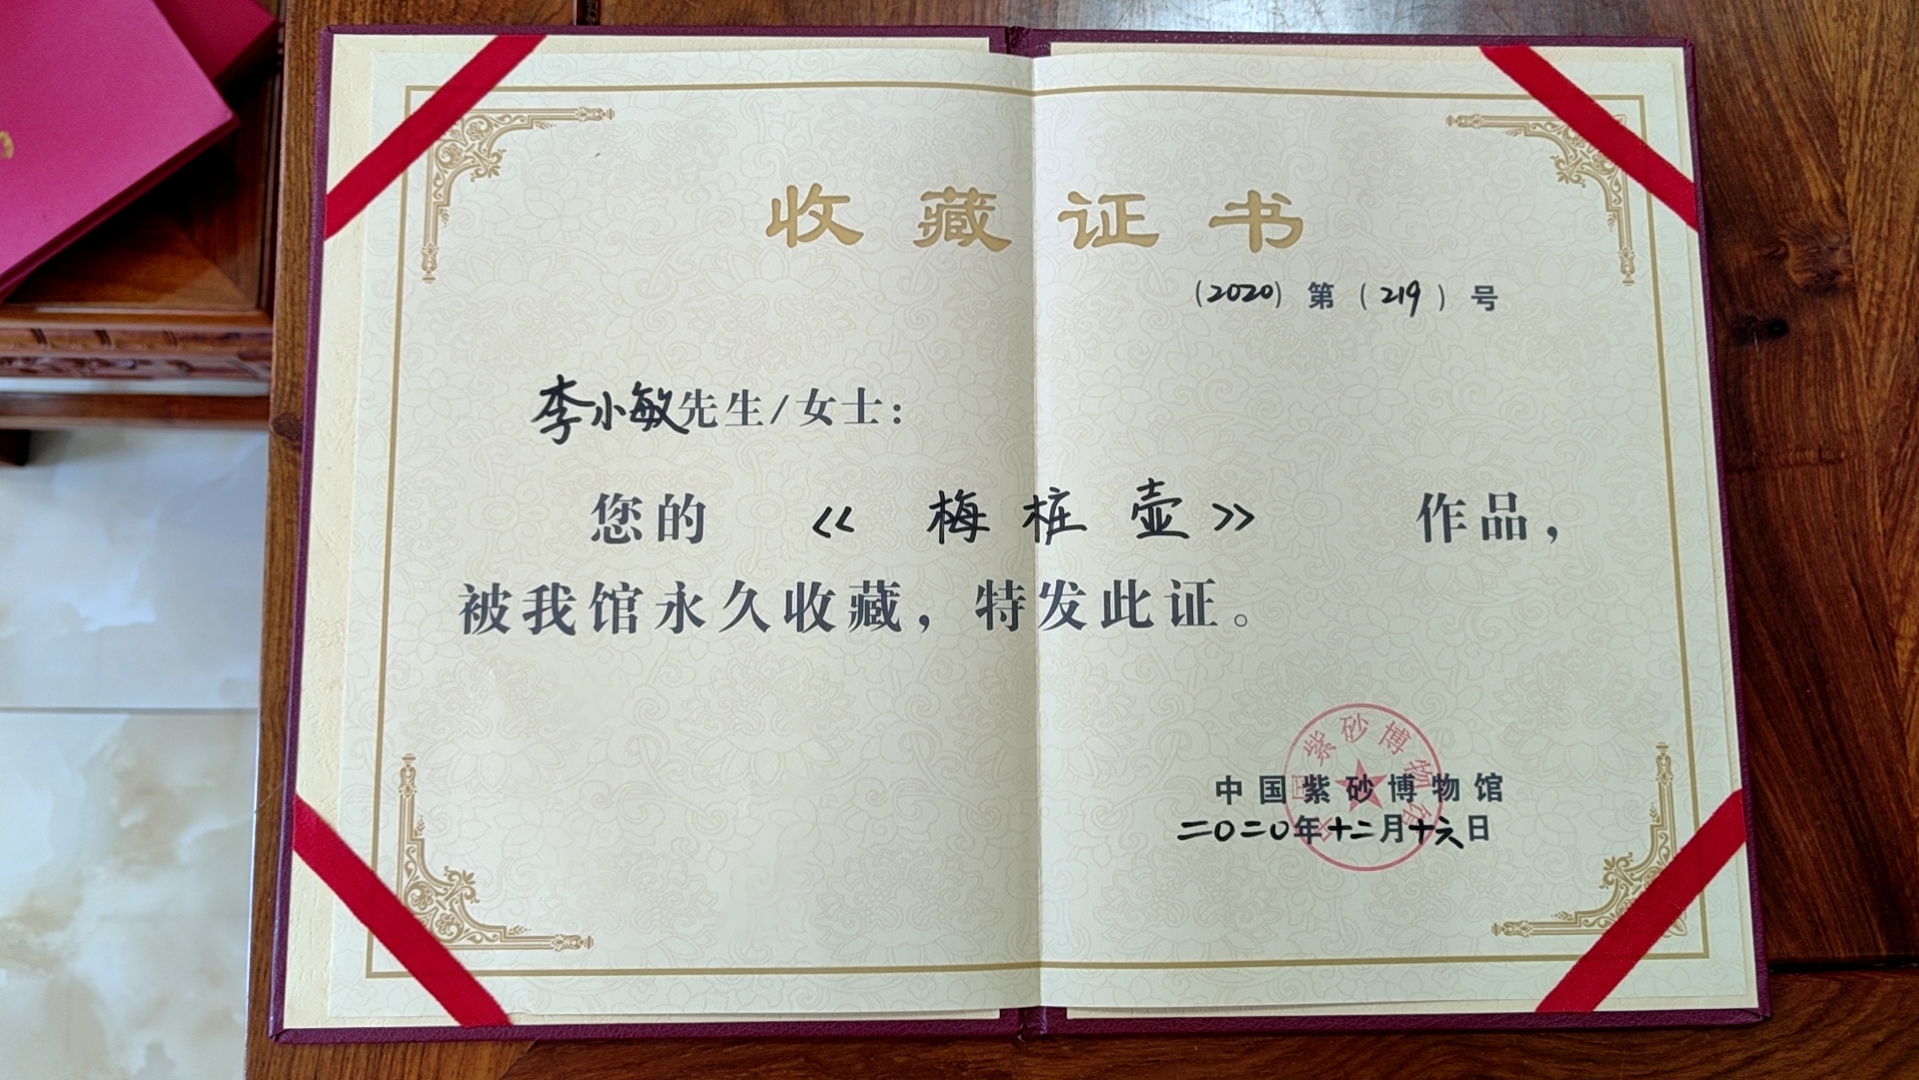 收藏证书
(2020) 第 (219) 号
李小敏先生/女士:
您的 《梅桩壶》 作品,
被我馆永久收藏,特发此证。
中国紫砂博物馆
中国紫砂博物馆
二〇二〇年十二月十六日